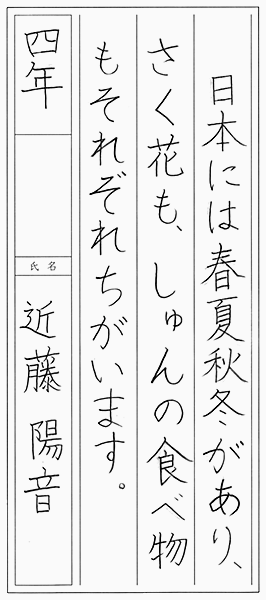 日本には春夏秋冬があり、
さく花も、しゅんの食べ物
もそれぞれちがいます。
四年
氏名
近藤陽音